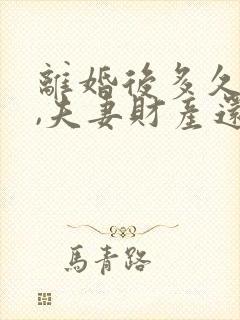 離婚後多久
,夫妻財產還
馬青路